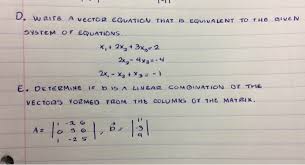 D. WRITE A VECTOR EQUATION THAT IS EQUIVALENT TO THE GIVEN
SYSTEM OF EQUATIONS
x₁ + 2x₂ + 3x₃ = 2
2x₂ - 4x₃ = -4
2x₁ - x₂ + x₃ = -1
E. DETERMINE IF b IS A LINEAR COMBINATION OF THE
VECTORS FORMED FROM THE COLUMNS OF THE MATRIX.
1 -2 6 11
A= 0 3 0 , b= -5
1 -2 5 9